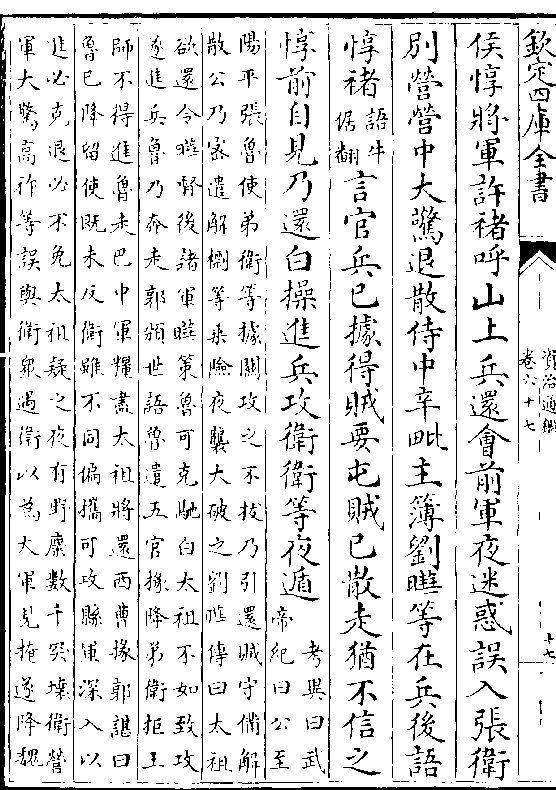 欽定四庫全書
資治通鑑
卷六十七
十七
侯惇將軍許褚呼山上兵還會前軍夜迷惑誤入張衛
別營營中大驚退散侍中辛毗主簿劉曄等在兵後語
惇褚語牛倨翻言官兵已據得賊要屯賊已散走猶不信之
惇前自見乃還白操進兵攻衛衛等夜遁考異曰武帝紀曰公至
陽平張魯使弟衛等據關攻之不拔乃引還賊守備解
散公乃密遣解㯹等乘險夜襲大破之劉曄傳曰太祖
欲還令曄督後諸軍曄策魯可克馳白太祖不如致攻
遂進兵魯乃奔走郭頒世語魯遣五官掾降弟衛拒王
師不得進魯走巴中軍糧盡太祖將還西曹掾郭諶曰
魯已降留使既未反衛雖不同偏攜可攻縣軍深入以
進必克退必不免太祖疑之夜有野麋數千突壞衛營
軍大驚高祚等誤與衛衆遇衛以為大軍見掩遂降魏